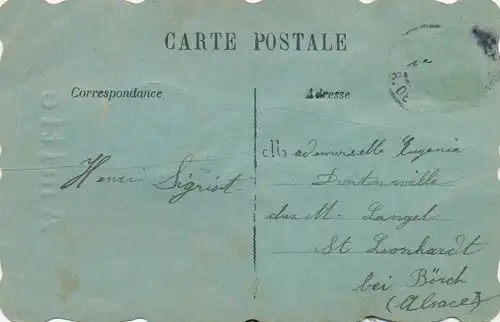 CARTE POSTALE
Correspondance
Adresse
Henri Sigrist.
Mademoiselle Eugenie
Dontenville
chez M. Langel
St Leonhardt
bei Börch
(Alsace)